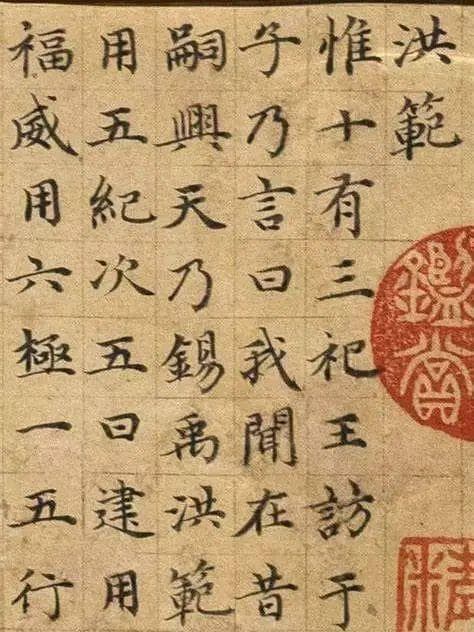 洪範
惟十有三祀王訪于
子乃言曰我聞在昔
嗣興天乃錫禹洪範
用五紀次五曰建用
福威用六極一五行
鑑賞
精